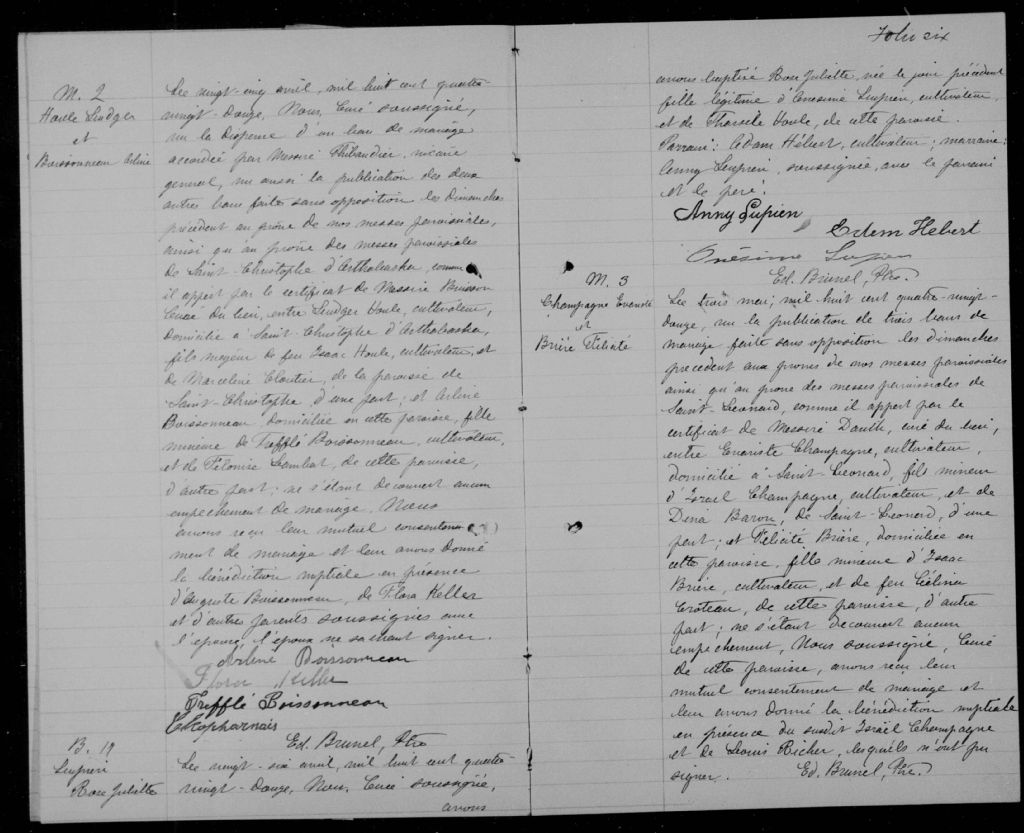 M. 2
Houle Ludger
et
Boissonneau Arline
Le vingt-cinq avril, mil huit cent quatre-
vingt-douze, Nous, Curé soussigné,
vu la dispense d'un ban de mariage
accordée par Messire Thibaudier, vicaire
general, vu aussi la publication des deux
autres bans faite sans opposition les dimanches
précédent au prône de nos messes paroissiales,
ainsi qu'au prône des messes paroissiales
de Saint-Christophe d'Arthabaska, comme
il appert par le certificat de Messire Buisson
Curé du lieu, entre Ludger Houle, cultivateur,
domicilié à Saint-Christophe d'Arthabaska,
fils majeur de feu Isaac Houle, cultivateur, et
de Marceline Cloutier, de la paroisse de
Saint-Christophe, d'une part; et Arline
Boissonneau, domiciliée en cette paroisse, fille
mineure de Trefflé Boissonneau, cultivateur,
et de Félonise Lambert, de cette paroisse,
d'autre part; ne s'étant decouvert aucun
empechement de mariage, Nous
avons reçu leur mutuel consente-
ment de mariage et leur avons donné
la bénédiction nuptiale en présence
d'Auguste Boissonneau, de Flora Keller
et d'autres parents soussignés avec
l'epouse, l'époux ne sachant signer.
Arline Boissonneau
Flora Keller
Trefflé Boissonneau
Ed. Brunel, Ptre
B. 19
Lupien
Rose Juliette
Le vingt-six avril, mil huit cent quatre-
vingt-douze, Nous, Curé soussigné,
avons
Folio six
avons baptisé Rose Juliette, née le jour précédent
fille légitime d'Onesime Lupien, cultivateur,
et de Tharsile Houle, de cette paroisse.
Parrain: Edam Hébert, cultivateur; marraine:
Anny Lupien, soussignée, avec le parrain
et le père.
Anny Lupien
Edem Hebert
Onésime Lupien
Ed. Brunel, Ptre.
M. 3
Champagne Evariste
et
Brière Félicité
Le trois mai, mil huit cent quatre-vingt-
douze, vu la publication de trois bans de
mariage faite sans opposition les dimanches
precedent aux prones de nos messes paroissiales
ainsi qu'au prone des messes paroissiales de
Saint-Leonard, comme il appert par le
certificat de Messire Dauth, curé du lieu,
entre Evariste Champagne, cultivateur,
domicilié à Saint-Leonard, fils mineur
d'Israel Champagne, cultivateur, et de
Dina Baron, de Saint-Leonard, d'une
part; et Félicité Brière, domiciliée en
cette paroisse, fille mineure d'Isaac
Brière, cultivateur, et de feu Célina
Croteau, de cette paroisse, d'autre
part; ne s'étant decouvert aucun
empechement, Nous soussigné, Curé
de cette paroisse, avons reçu leur
mutuel consentement de mariage et
leur avons donné la bénédiction nuptiale
en présence du susdit Israël Champagne
et de Louis Richer, lesquels n'ont pu
signer.
Ed. Brunel, Ptre.